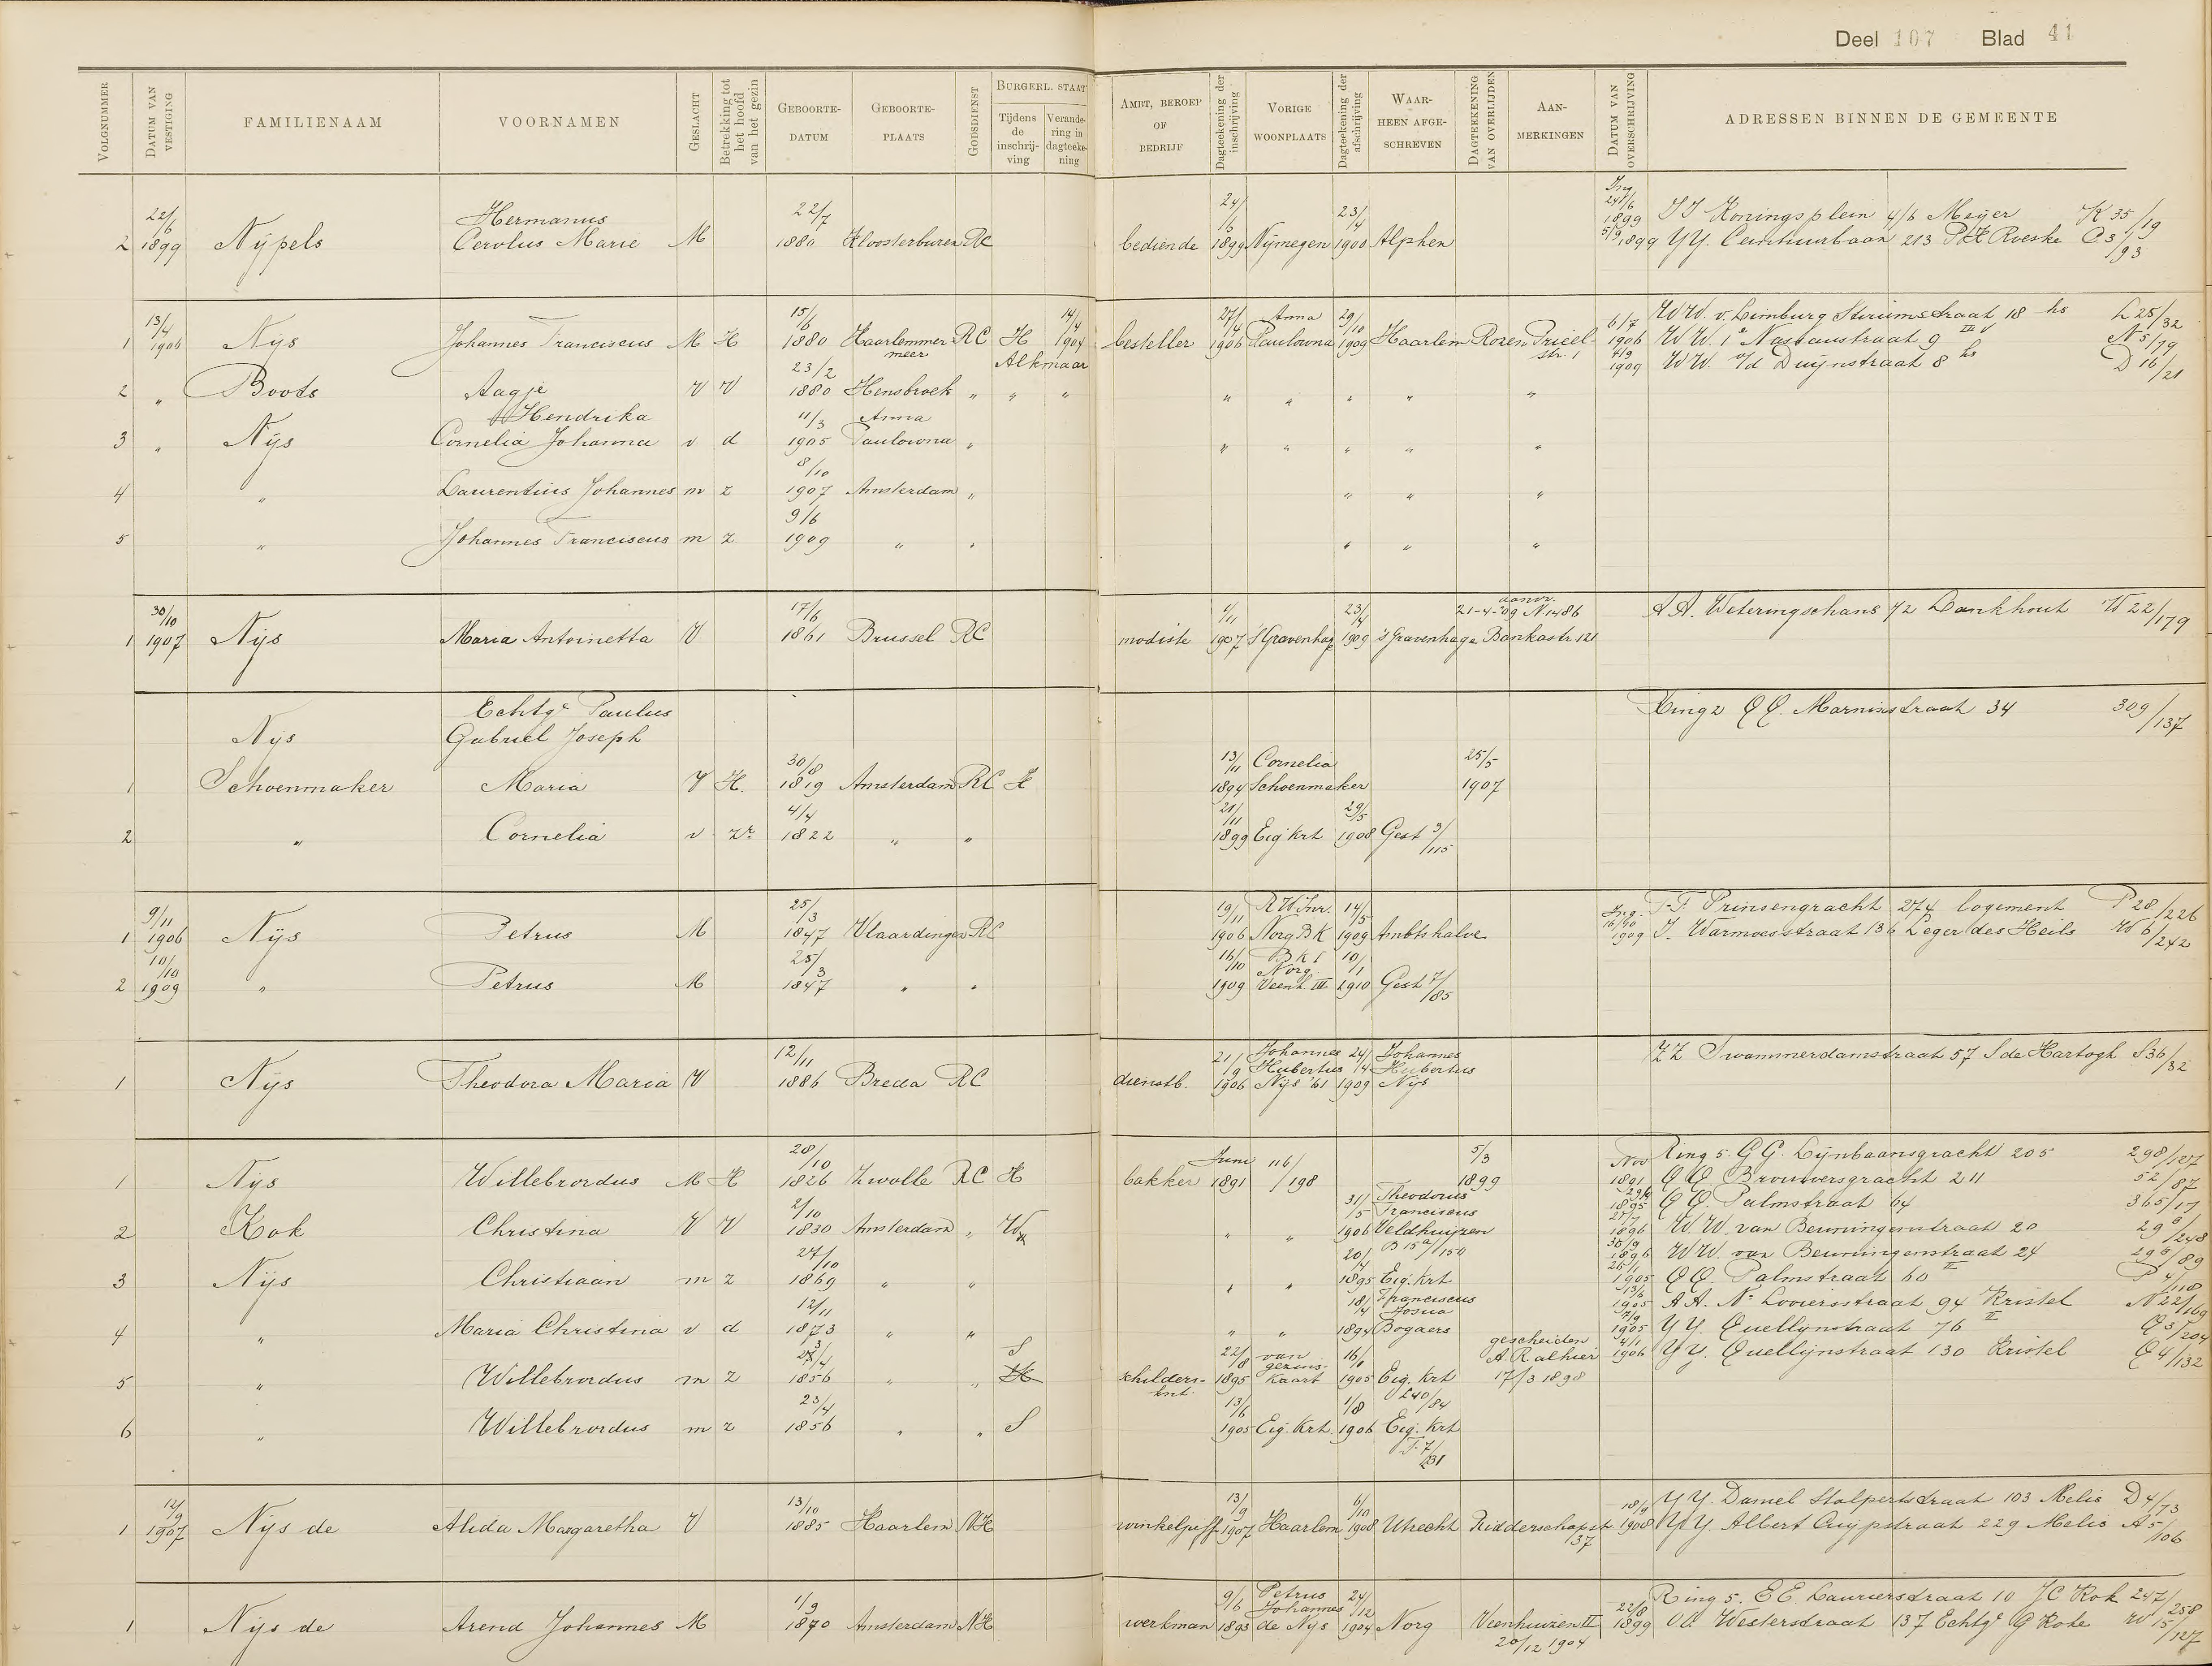 Deel 107 Blad 41
VOLGNUMMER DATUM VAN VESTIGING FAMILIENAAM VOORNAMEN GESLACHT Betrekking tot het hoofd van het gezin GEBOORTE-DATUM GEBOORTE-PLAATS GODSDIENST BURGERL. STAAT Tijdens de inschrijving Verandering in dagteekening AMBT, BEROEP OF BEDRIJF Dagteekening der inschrijving VORIGE WOONPLAATS Dagteekening der afschrijving WAARHEEN AFGESCHREVEN DAGTEEKENING VAN OVERLIJDEN AANMERKINGEN DATUM VAN OVERSCHRIJVING ADRESSEN BINNEN DE GEMEENTE
2 22/6 1899 Nijpels Hermanus Cerolus Marie M 22/7 1880 Kloosterburen RC bediende 24/6 1899 Nijmegen 23/4 1900 Alphen
Ing 24/6 1899 JJ Koningsplein 4/6 Meijer K 35/19
5/9 1899 YY. Ceintuurbaan 213 PH Roeske C 3/93
1 13/4 1906 Nijs Johannes Franciscus M H 15/6 1880 Haarlemmermeer RC H 14/4 1904 Alkmaar besteller 27/4 1906 Anna Paulowna 29/10 1909 Haarlem Rozen Prieelstr. 1
WW. v. Limburg Stirumstraat 18 hs L 25/32
6/7 1906 WW. 1e Nassaustraat 9 III v N 5/79
1909 WW. v/d Duijnstraat 8 hs D 16/21
2 " Boots Aagje V V 23/2 1880 Hensbroek " " " " " " " "
3 " Nijs Hendrika Cornelia Johanna v d 11/3 1905 Anna Paulowna " " " " " "
4 " Laurentius Johannes m z 8/10 1907 Amsterdam " " " "
5 " Johannes Franciscus m z 9/6 1909 " " " " "
1 30/10 1907 Nijs Maria Antoinetta V 17/6 1861 Brussel RC modiste 1/11 1907 's Gravenhage 23/4 1909 's Gravenhage Bankastr 121 aanvr. 21-4-'09 N 1486
AA. Weteringschans 72 Dankhout W 22/179
Nijs Echtge Paulus Gabriel Joseph
Ring 2 QQ. Marnixstraat 34 309/137
1 Schoenmaker Maria V H. 30/8 1819 Amsterdam RC H 13/11 1894 Cornelia Schoenmaker 25/5 1907
2 " Cornelia v zr 4/4 1822 " " 21/11 1899 Eig krt 29/5 1908 Gest 3/115
1 9/11 1906 Nijs Petrus M 25/3 1847 Vlaardingen RC 19/11 1906 R.W.Inr. Norg BK 14/5 1909 Ambtshalve
FF. Prinsengracht 274 logement P 28/226
Ing. 16/10 1909 J. Warmoesstraat 136 Leger des Heils W 6/242
2 10/10 1909 " Petrus M 25/3 1847 " " 16/10 1909 BKI Norg Veenh. III 10/1 1910 Gest 7/85
1 Nijs Theodora Maria V 12/11 1886 Breda RC dienstb. 21/9 1906 Johannes Hubertus Nijs '61 24/4 1909 Johannes Hubertus Nijs
ZZ Swammerdamstraat 57 S de Hartogh S 36/32
1 Nijs Willebrordus M H 28/10 1826 Zwolle RC H bakker Juni 1891 116/198 5/3 1899
Ring 5. GG. Lijnbaansgracht 205 298/127
Nov 1891 QQ. Brouwersgracht 211 52/87
1895 QQ. Palmstraat 64 365/17
1896 WW. van Beuningenstraat 20 29 8/248
30/9 1896 WW. van Beuningenstraat 24 29 8/89
26/1 1905 QQ. Palmstraat 60 II P 4/118
13/6 1905 AA. Ne Looiersstraat 94 Kristel N 22/169
1905 YY. Quellijnstraat 76 II Q 3/204
4/1 1906 YY. Quellijnstraat 130 Kristel Q 4/132
2 Kok Christina V V 2/10 1830 Amsterdam " W " " 31/5 1906 Theodorus Franciscus Veldhuizen B 15 a/150
3 Nijs Christiaan m z 27/10 1869 " " " " 20/4 1895 Eig. krt
4 " Maria Christina v d 12/11 1873 " " " " 18/4 1894 Franciscus Josua Bogaers
5 " Willebrordus m z 23/4 1856 " " S H schilders-knt. 22/8 1895 van gezinskaart 16/ 1905 Eig. krt L 40/84 gescheiden A.R. alhier 17/3 1898
6 " Willebrordus m z 23/4 1856 " " S 13/6 1905 Eig. Krt. 1/8 1906 Eig. Krt T. 7/231
1 12/9 1907 Nijs de Alida Margaretha V 13/10 1885 Haarlem NH winkeljuff. 13/9 1907 Haarlem 6/10 1908 Utrecht Ridderschapst 137
YY. Daniel Stalpertstraat 103 Melis D 4/73
18/9 1908 YY. Albert Cuijpstraat 229 Melis A 5/106
1 Nijs de Arend Johannes M 1/9 1870 Amsterdam NH werkman 9/6 1893 Petrus Johannes de Nijs 24/12 1904 Norg Veenhuizen II 20/12 1904
Ring 5. EE. Laurierstraat 10 JC Kok 247/258
22/8 1899 OO. Westerstraat 137 Echtge G Kote W 15/127